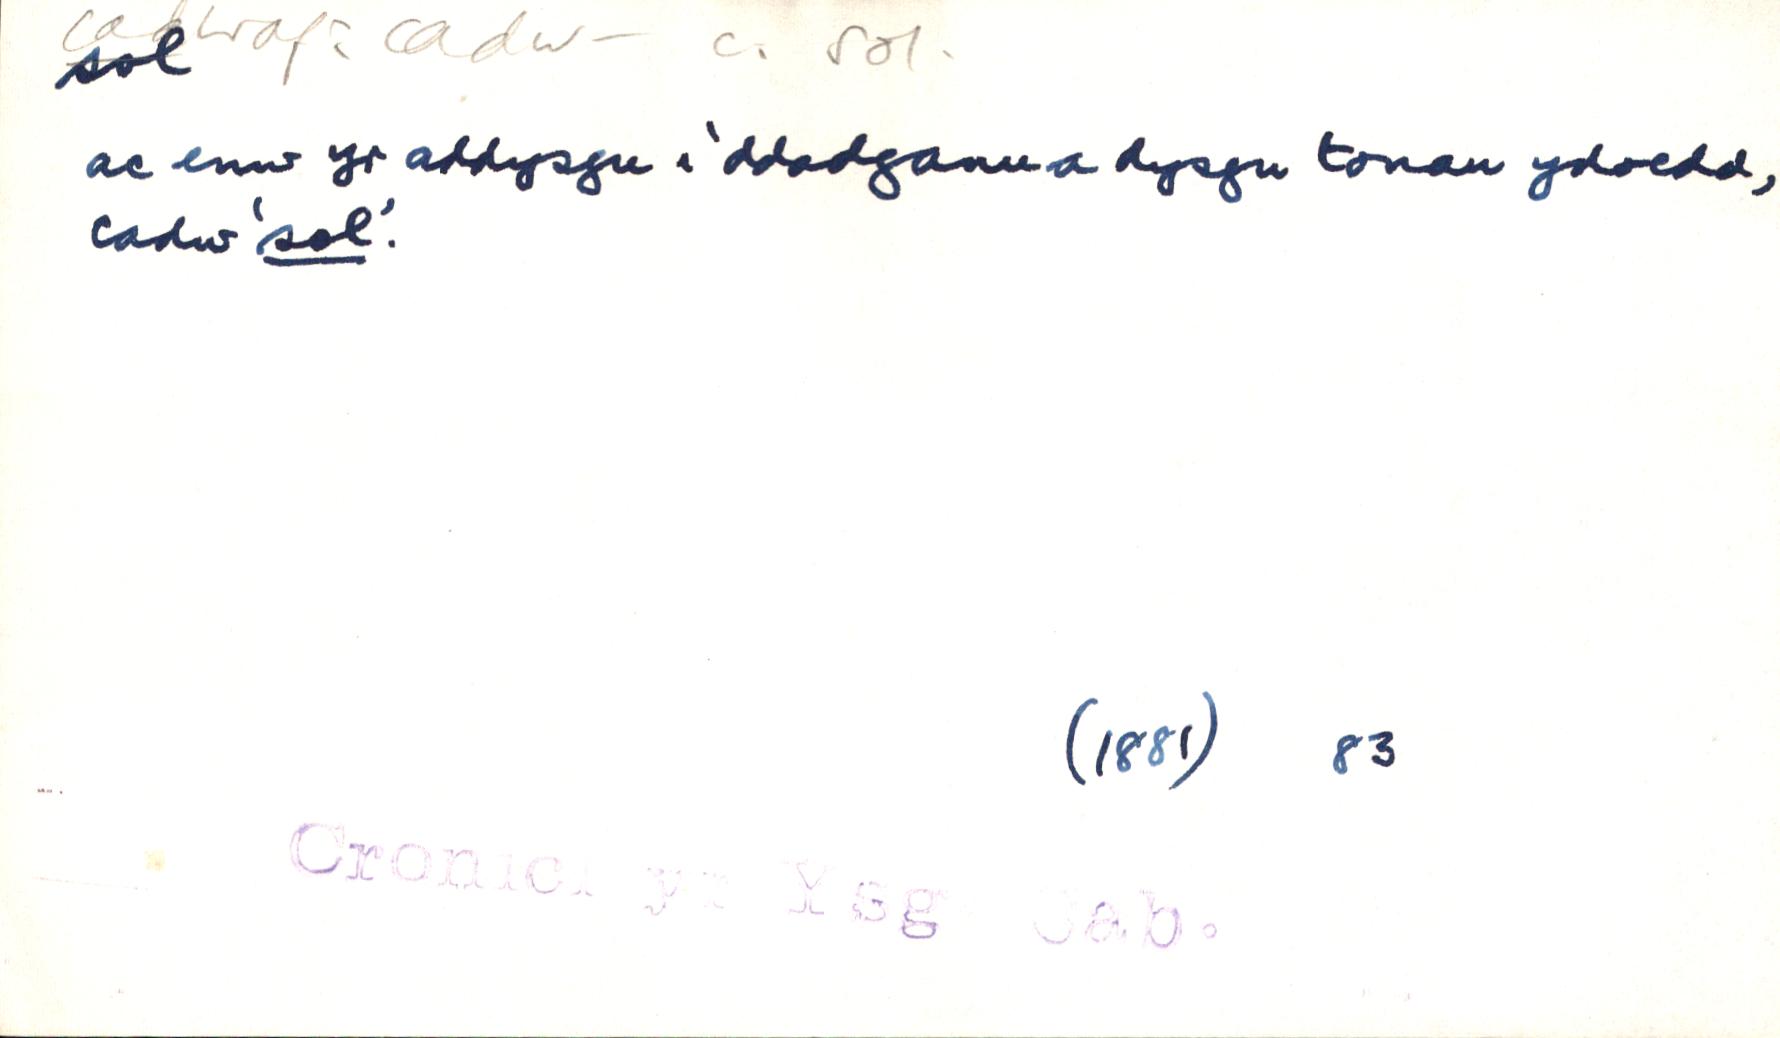 cadwaf: cadw – c. sol.
sol
ac enw yr addysgu i 'ddadganu a dysgu tonau ydoedd,
cadw 'sol'.
(1881) 83
Cronicl yr Ysg Sab.